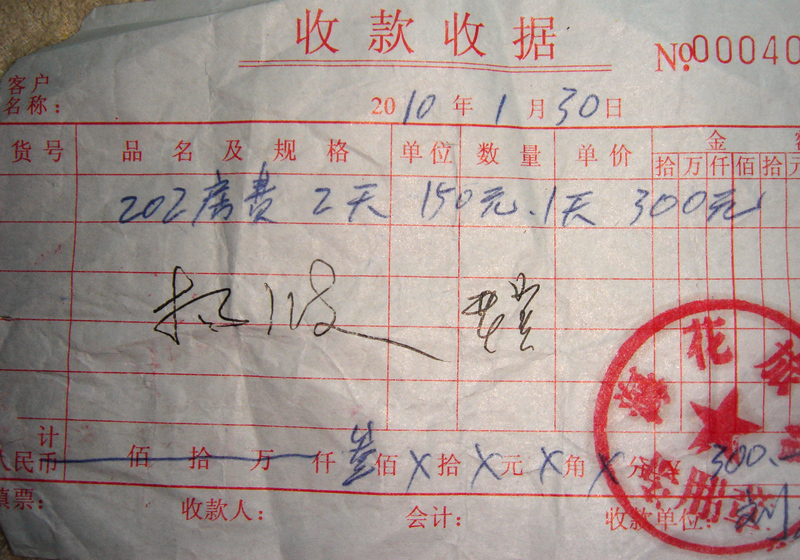 收款收据
No.000040
客户
名称：
2010年1月30日
货号 品名及规格 单位 数量 单价 金
拾 万 仟 佰 拾 元
202房费 2天 150元.1天 300元
计
人民币 佰 拾 万 仟 叁佰 X拾 X元 X角 X分 300.
填票： 收款人： 会计： 收款单位：
花